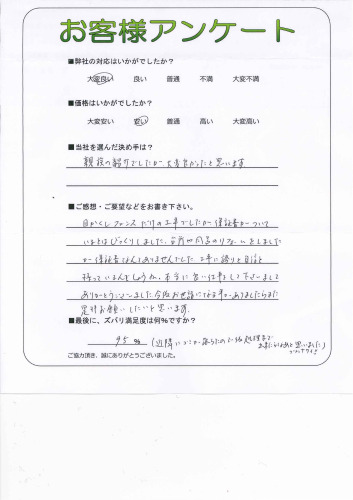 お客様アンケート
■弊社の対応はいかがでしたか？
大変良い 良い 普通 不満 大変不満
■価格はいかがでしたか？
大変安い 安い 普通 高い 大変高い
■当社を選んだ決め手は？
親族の紹介でしたが、大正解だったと思います
■ご感想・ご要望などをお書き下さい。
目かくしフェンスだけの工事でしたが保証書がついて
いたとはびっくりしました。
が保証書なんてありませんでした。工事に誇りと自信を
持っているんでしょうね。本当に良い仕事をして下さいまして
ありがとうございました。今後お世話になる事がありましたらまた
是非お願いしたいと思います。
■最後に、ズバリ満足度は何％ですか？
95 % (近隣
と思いました)
ご協力頂き、誠にありがとうございました。